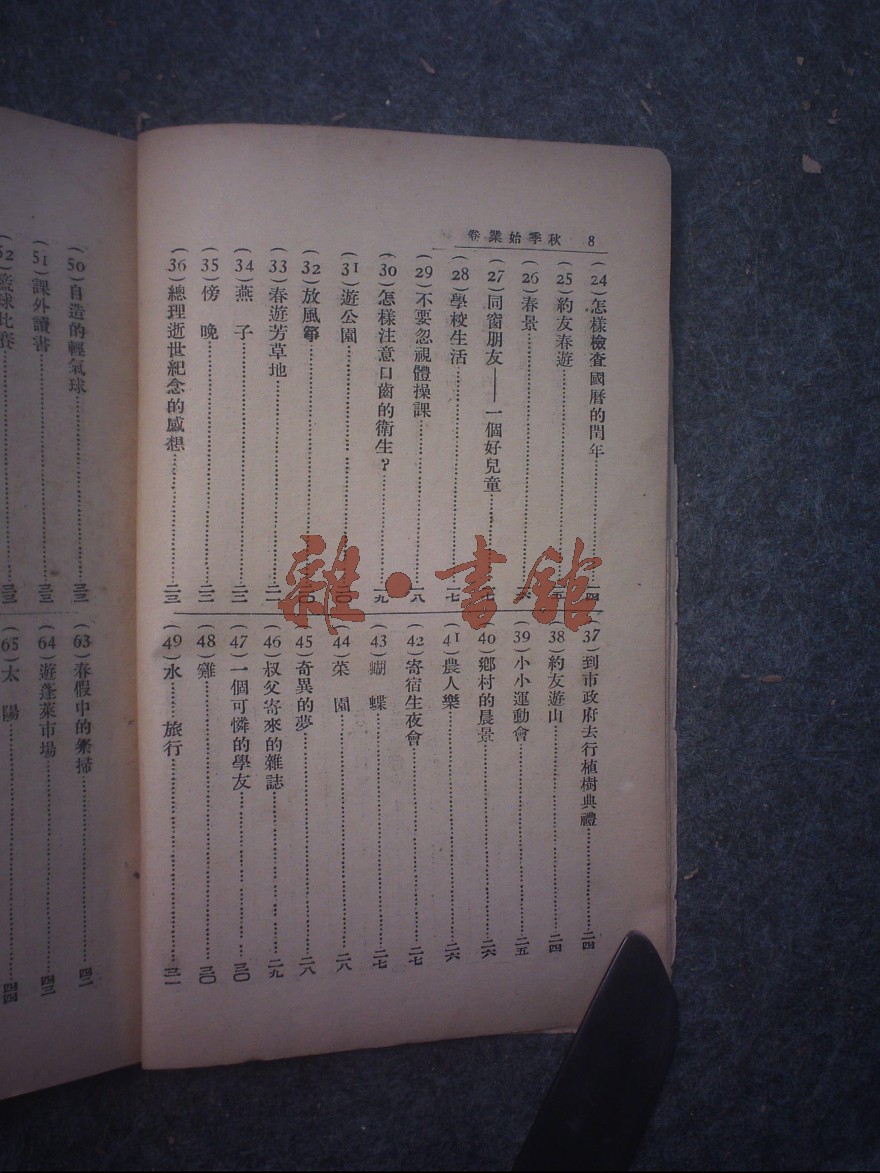 8 秋季始業卷
(24)怎樣檢查國曆的閏年……一四
(25)約友春遊……五
(26)春景……六
(27)同窗朋友——一個好兒童……
(28)學校生活……一七
(29)不要忽視體操課……一八
(30)怎樣注意口齒的衛生？……一九
(31)遊公園……二〇
(32)放風箏……二〇
(33)春遊芳草地……二一
(34)燕子……二二
(35)傍晚……二二
(36)總理逝世紀念的感想……二三
(37)到市政府去行植樹典禮……二四
(38)約友遊山……二四
(39)小小運動會……二五
(40)鄉村的晨景……二六
(41)農人樂……二六
(42)寄宿生夜會……二七
(43)蝴蝶……二七
(44)菜園……二八
(45)奇異的夢……二八
(46)叔父寄來的雜誌……二九
(47)一個可憐的學友……三〇
(48)雞……三〇
(49)水 旅行……三一
(50)自造的輕氣球……三二
(51)課外讀書……三三
(52)籃球比賽……三三
(63)春假中的祭掃……四二
(64)遊蓬萊市場……四三
(65)太陽……四四
雜·書館